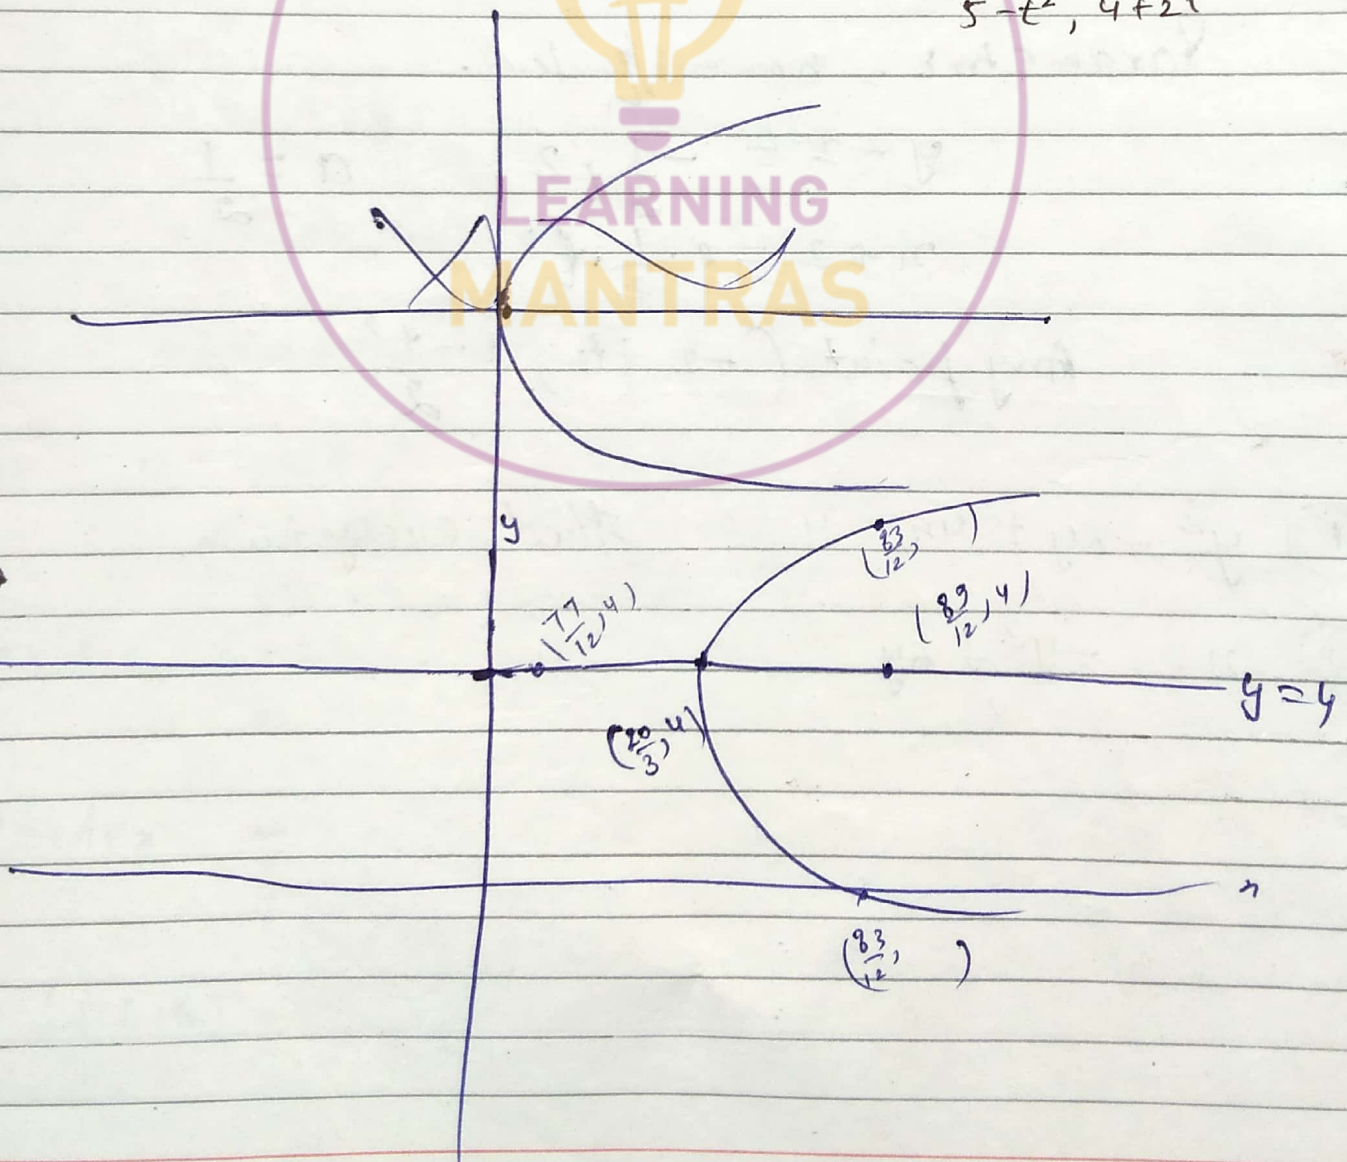 5-t², 4+2t
LEARNING
MANTRAS
y
(83/12,     )
(77/12, 4)
(89/12, 4)
y = 4
(20/3, 4)
x
(83/12,     )